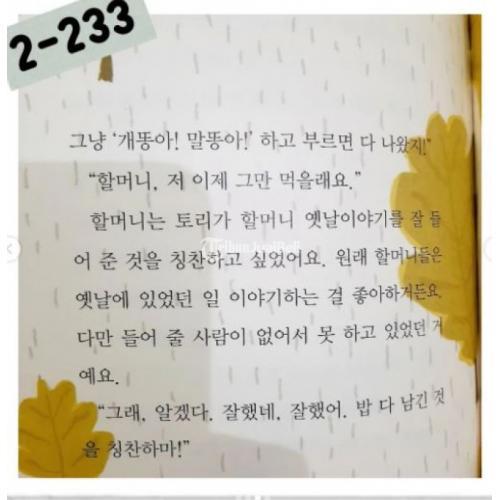 2-233
그냥 ‘개똥아! 말똥아!’ 하고 부르면 다 나왔지!”
“할머니, 저 이제 그만 먹을래요.”
할머니는 토리가 할머니 옛날이야기를 잘 들
어 준 것을 칭찬하고 싶었어요. 원래 할머니들은
옛날에 있었던 일 이야기하는 걸 좋아하거든요.
다만 들어 줄 사람이 없어서 못 하고 있었던 거
예요.
“그래, 알겠다. 잘했네, 잘했어. 밥 다 남긴 것
을 칭찬하마!”